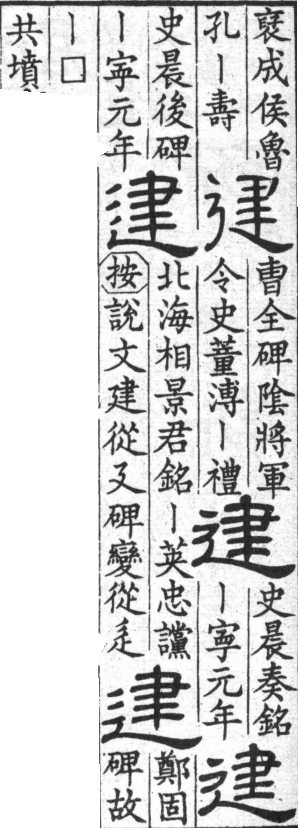 襃成侯魯
孔丨壽
建
曹全碑陰將軍
令史董溥丨禮
建
史晨奏銘
丨寧元年
建
史晨後碑
丨寧元年
建
北海相景君銘丨英忠讜
按說文建從廴碑變從辵
建
鄭固
碑故
丨□
共墳